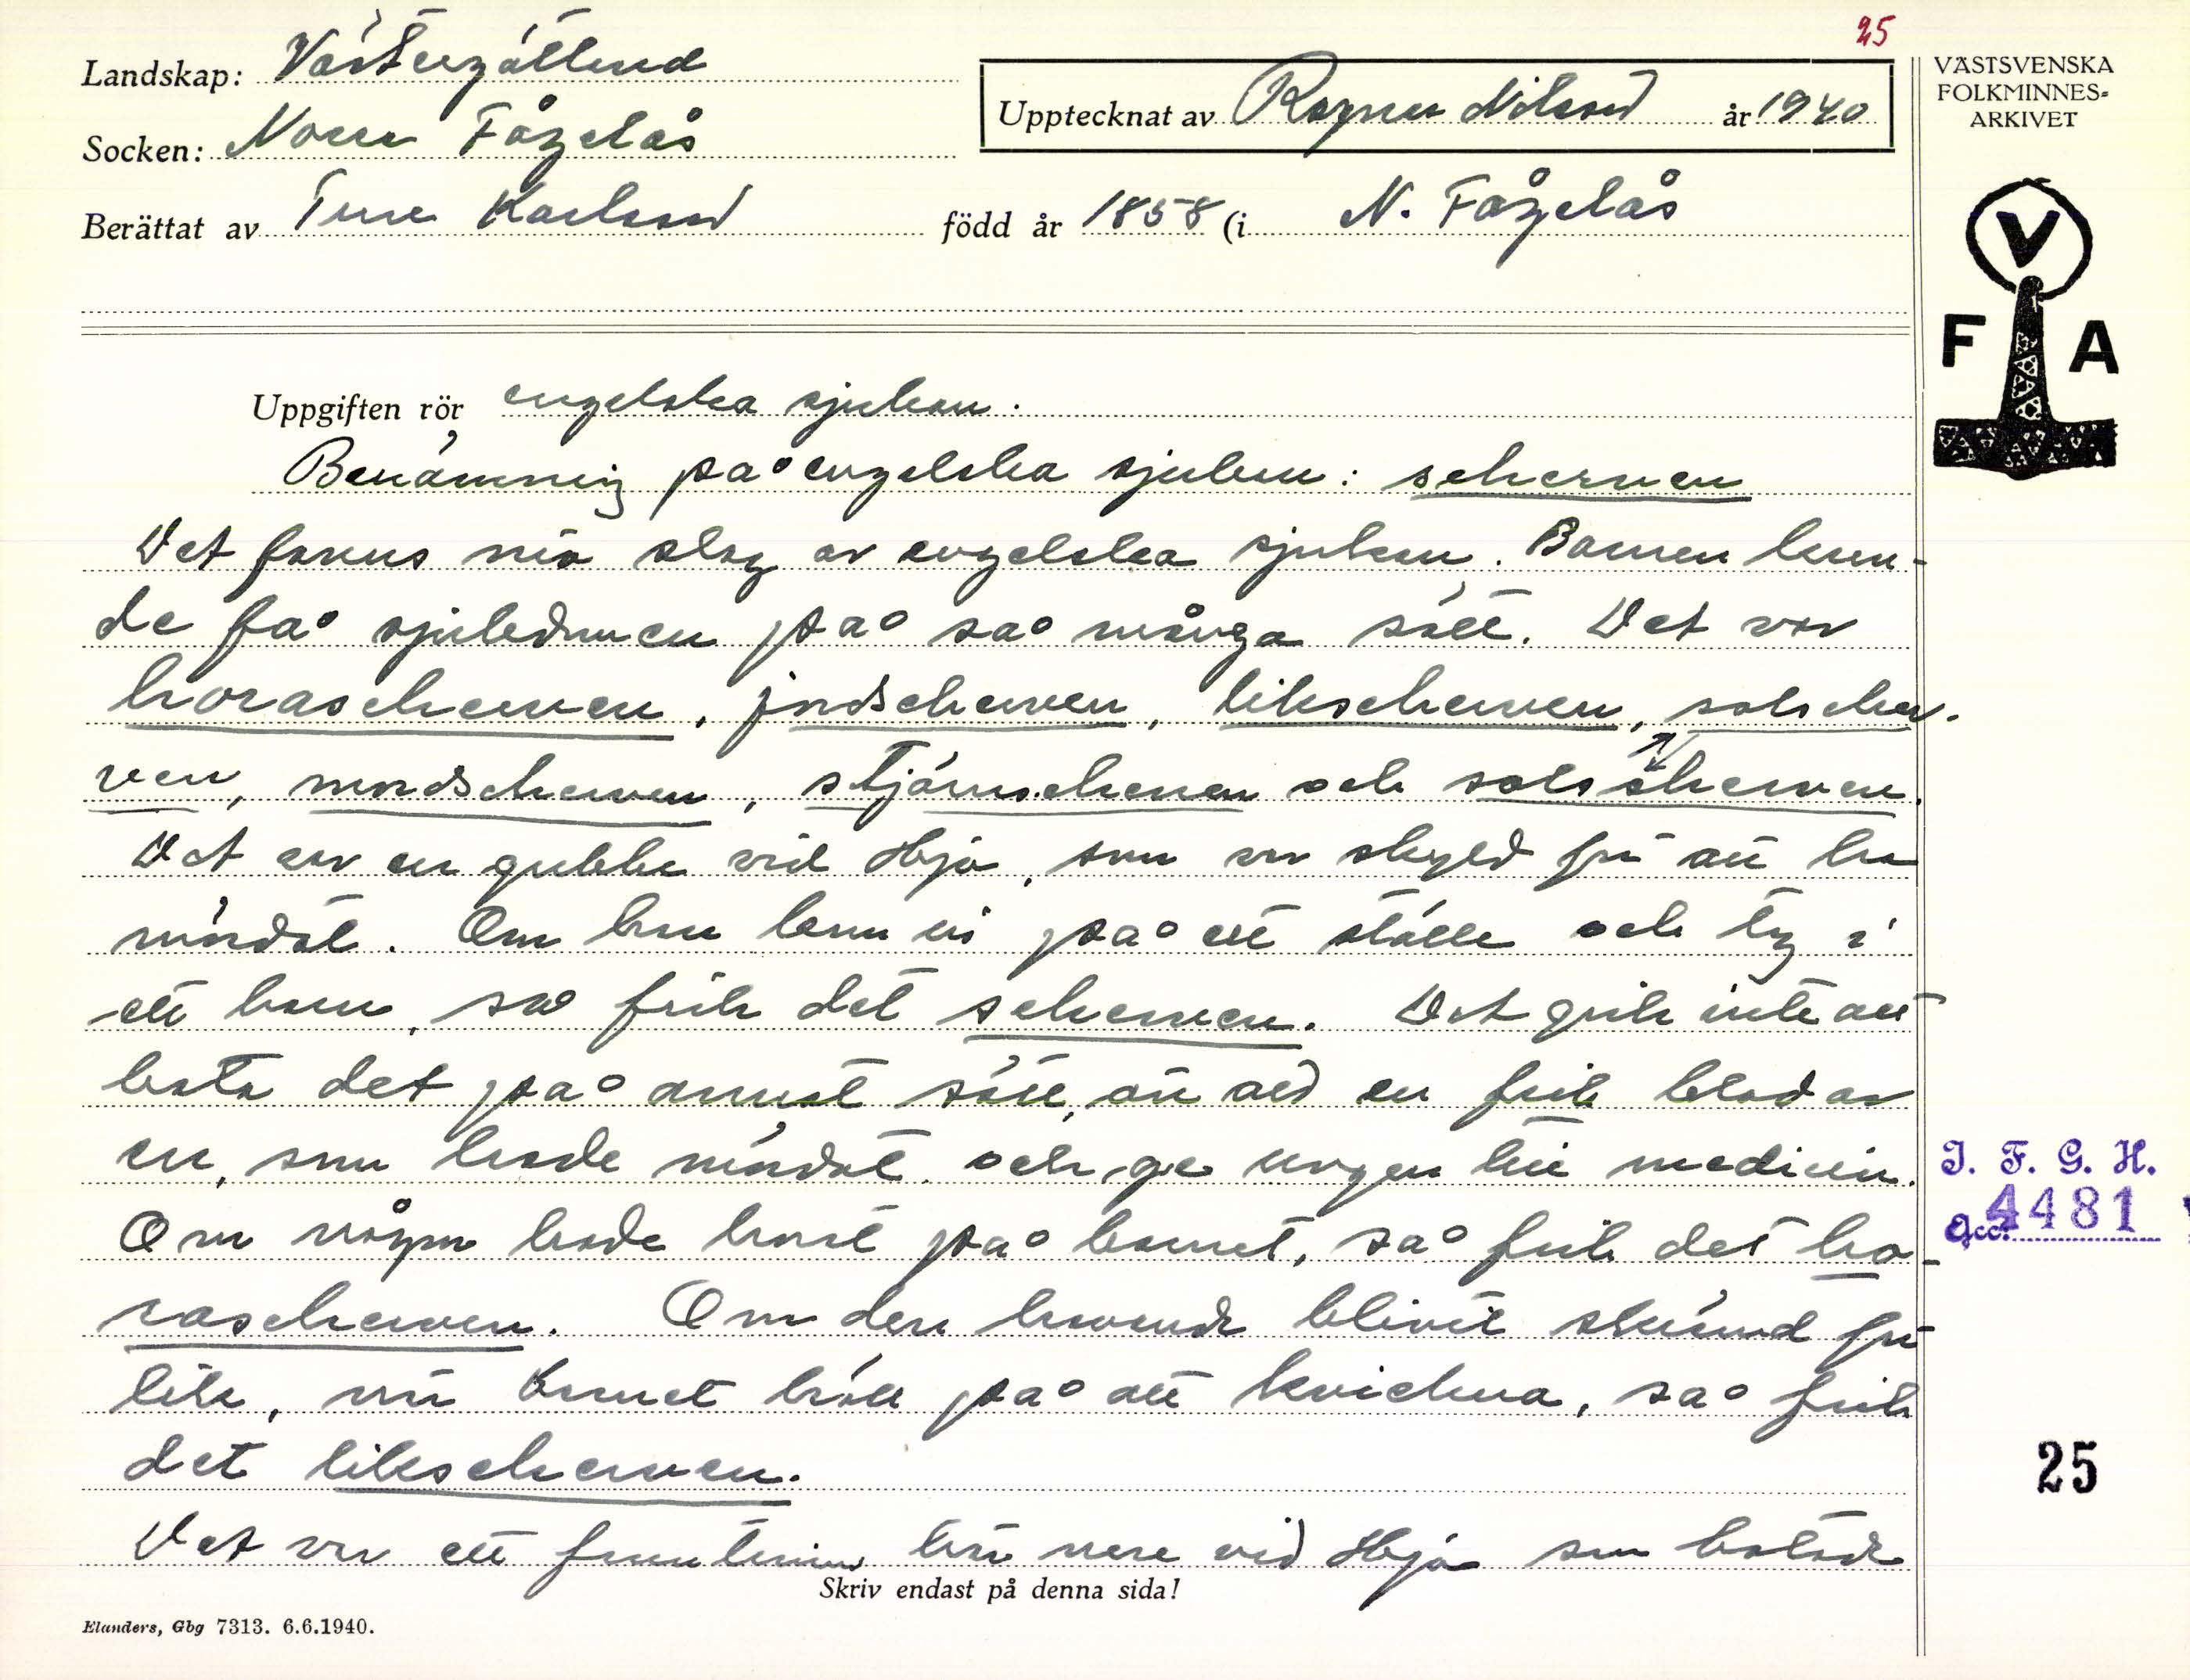 25
Landskap: Västergötland
Socken: Norra Fågelås
Upptecknat av Ragnar Nilsson år 1940
Berättat av Ture Karlsson född år 1858 (i N. Fågelås
VÄSTSVENSKA
FOLKMINNES=
ARKIVET
V
F A
Uppgiften rör engelska sjukan.
Benämning på engelska sjukan: scherven
Det fanns nio slag av engelska sjukan. Barnen kun-
de få sjukdomen på så många sätt. Det var
horascherven, jordscherven, likscherven, solscher-
ven, mordscherven, stjärnscherven och
Det var en gubbe vid Hjo, som var skyld för att ha
mördat. Om han kom in på ett ställe och tog i
ett barn, så fick det scherven. Det gick inte att
bota det på annat sätt, än att en fick blod av
en, som hade mördat och ge ungen till medicin.
Om någon hade horat på barnet, så fick det ho-
rascherven. Om den havande blivit skrämd för
lik, när barnet höll på att kvickna, så fick
det likscherven.
Det var ett fruntimmer här nere vid Hjo som botade
Skriv endast på denna sida!
Elanders, Gbg 7313. 6.6.1940.
I. F. G. H.
Acc. 4481
25